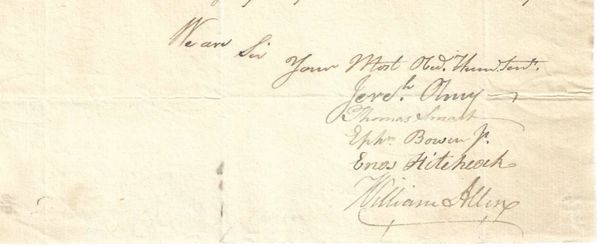 We are Sir
Your Most Obd. Hum. Servts.
JerEh. Olney
Thomas Smart
Ephm. Bowen Jr.
Enos Hitchcock
William Allen